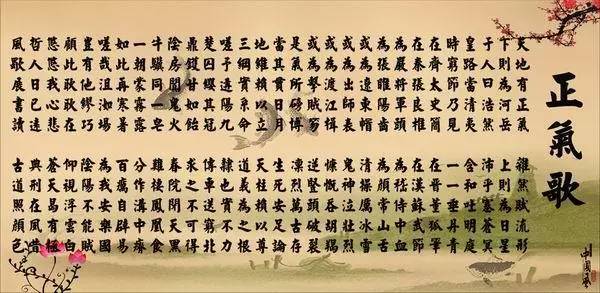 正氣歌
天地有正氣 雜然賦流形
下則為河岳 上則為日星
于人曰浩然 沛乎塞蒼冥
皇路當清夷 含和吐明庭
時窮節乃見 一一垂丹青
在齊太史簡 在晉董狐筆
在秦張良椎 在漢蘇武節
為嚴將軍頭 為嵇侍中血
為張睢陽齒 為顏常山舌
或為遼東帽 清操厲冰雪
或為出師表 鬼神泣壯烈
或為渡江楫 慷慨吞胡羯
或為擊賊笏 逆豎頭破裂
是氣所磅礡 凜烈萬古存
當其貫日月 生死安足論
地維賴以立 天柱賴以尊
三綱實系命 道義為之根
嗟予遘陽九 隸也實不力
楚囚纓其冠 傳車送窮北
鼎鑊甘如飴 求之不可得
陰房闃鬼火 春院閟天黑
牛驥同一皂 雞棲鳳凰食
一朝蒙霧露 分作溝中瘠
如此再寒暑 百癘自辟易
嗟哉沮洳場 為我安樂國
豈有他繆巧 陰陽不能賊
顧此耿耿在 仰視浮雲白
悠悠我心悲 蒼天曷有極
哲人日已遠 典刑在夙昔
風檐展書讀 古道照顏色
中國風